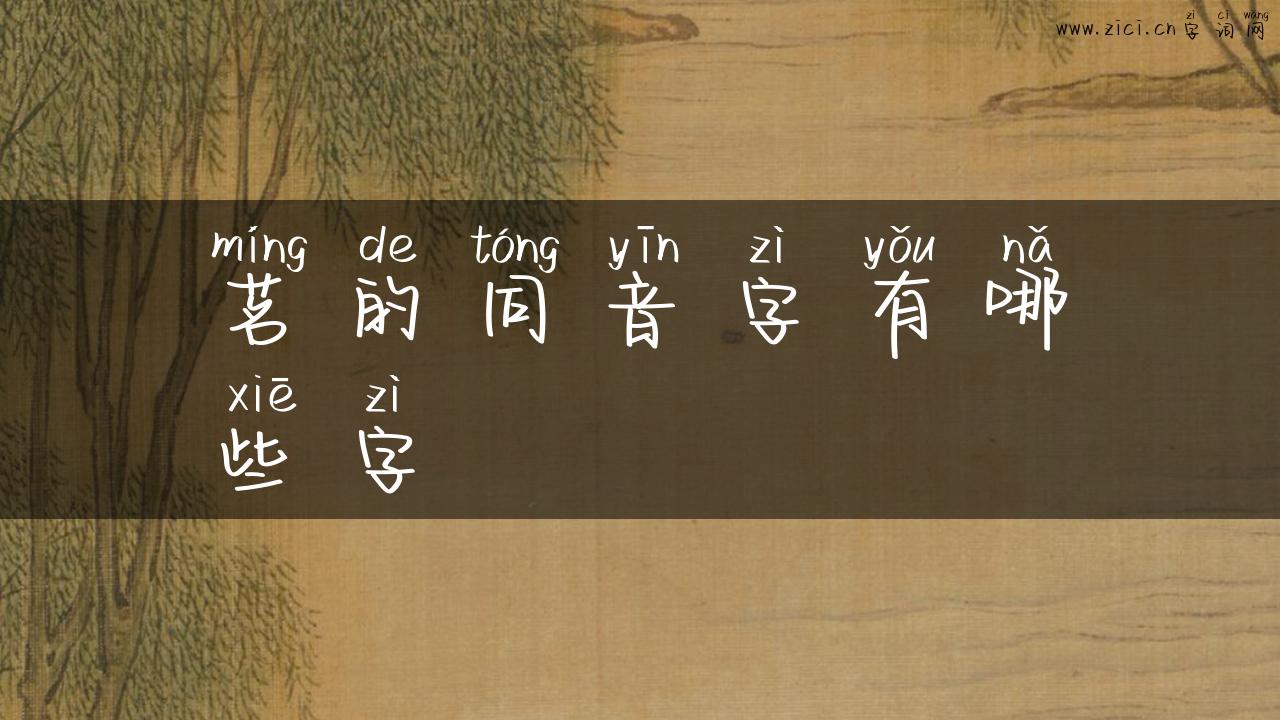 zì cí wǎng
www.zici.cn 字词网
míng de tóng yīn zì yǒu nǎ
茗的同音字有哪
xiē zì
些字